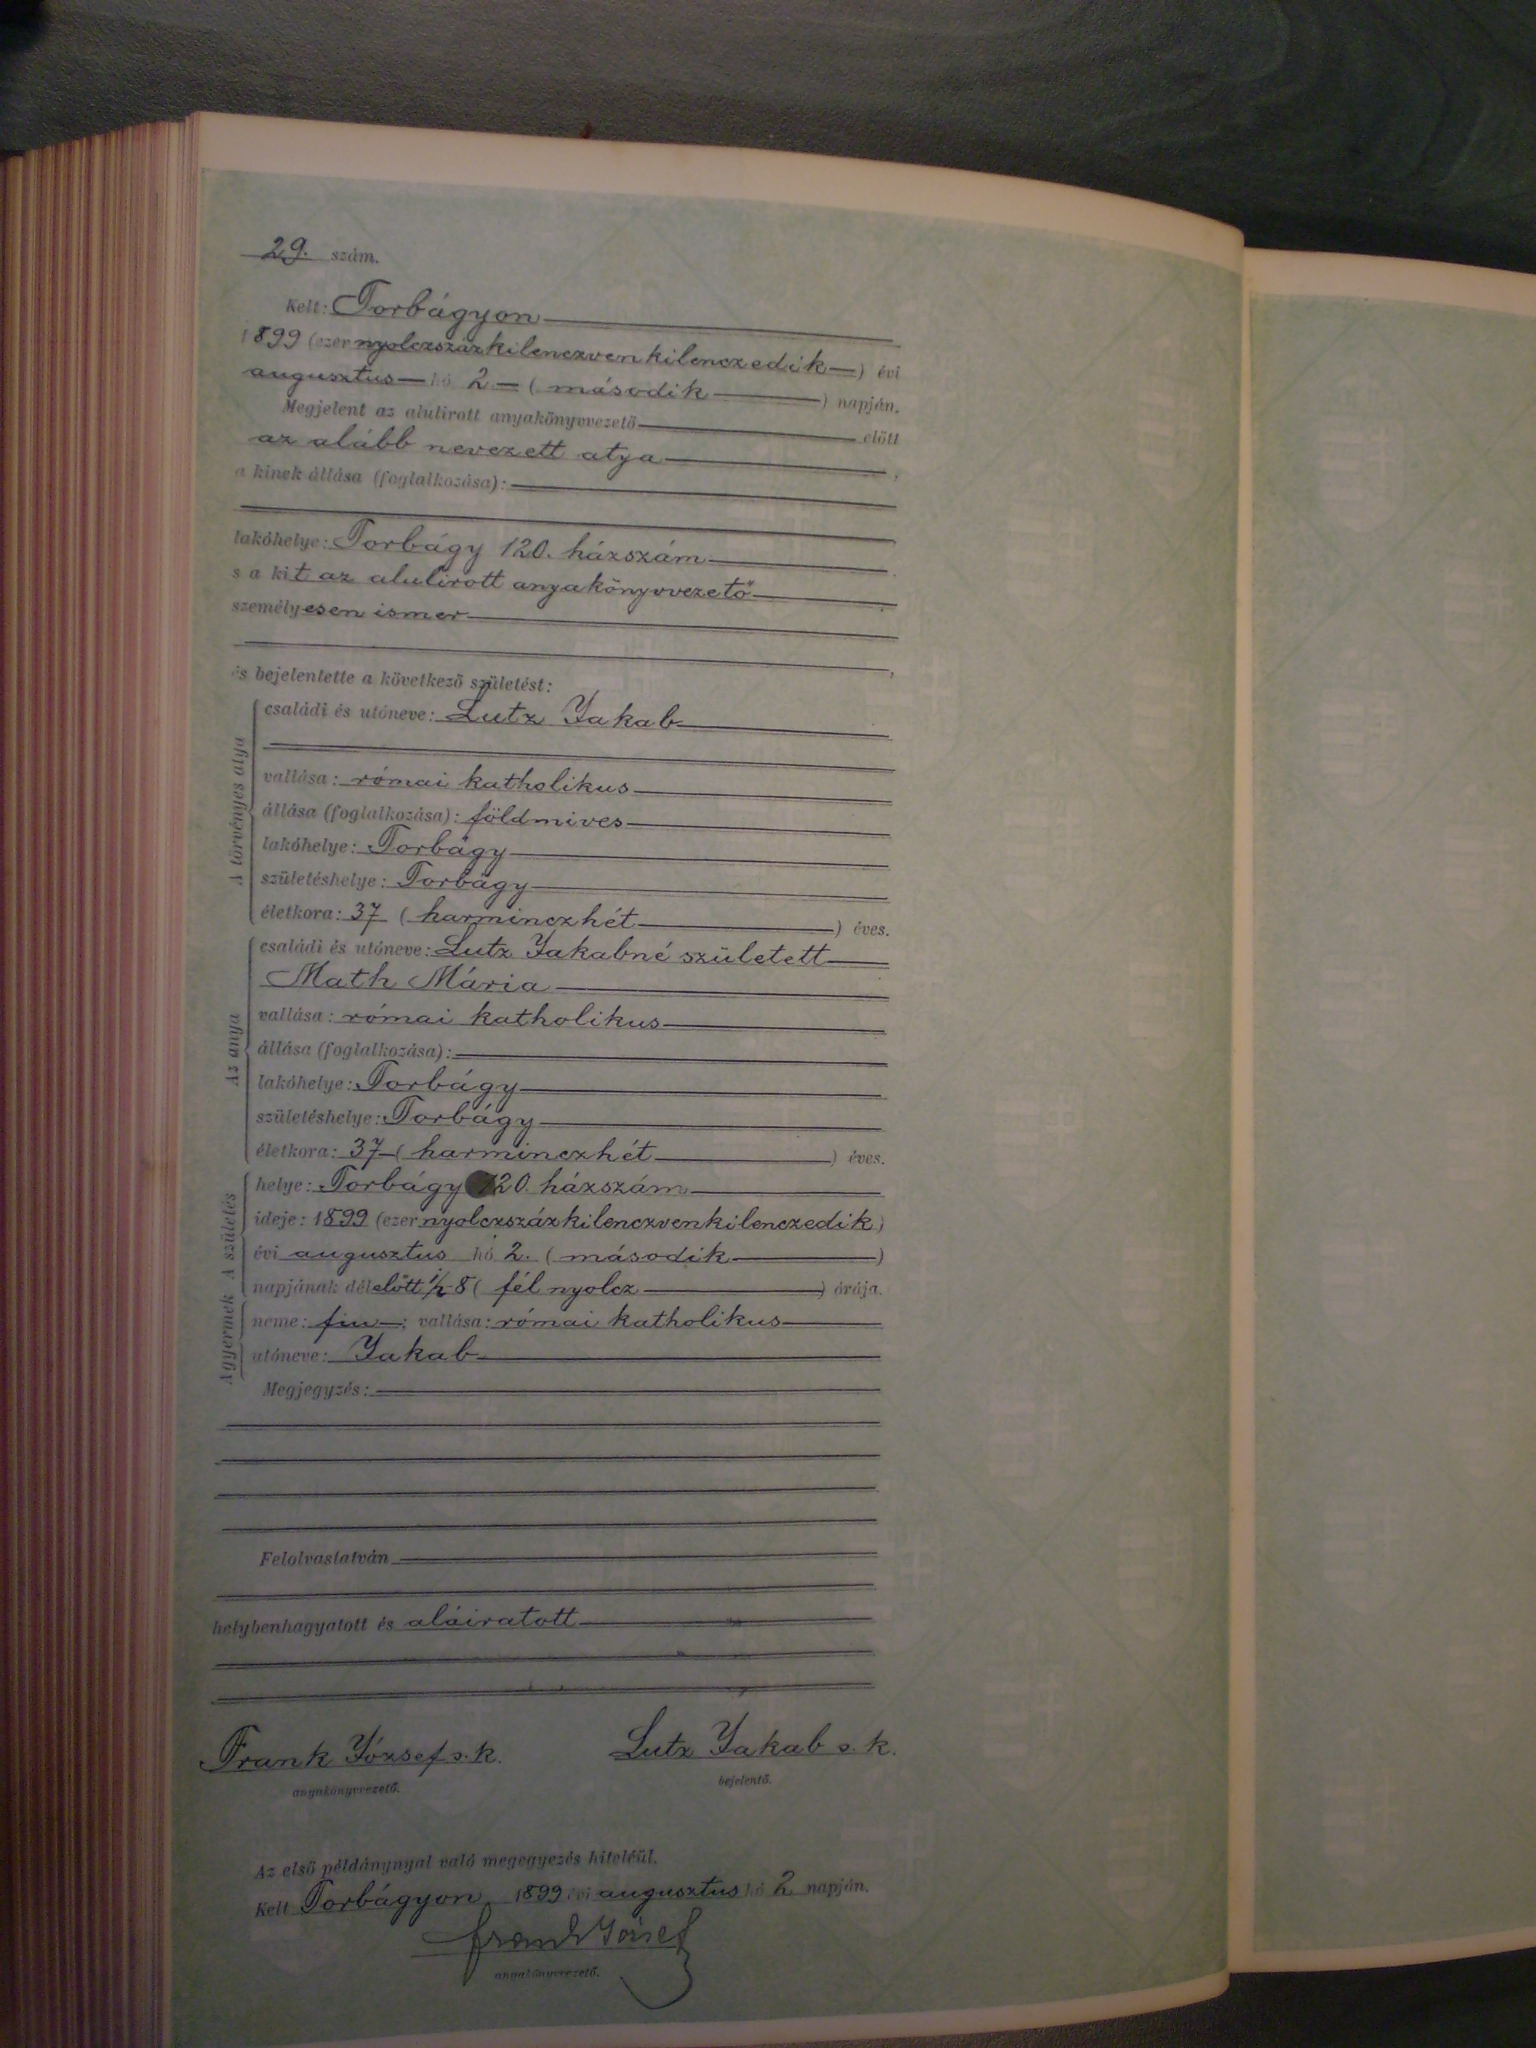 29. szám.
Kelt: Torbágyon
1899 (ezer nyolczszázkilenczvenkilenczedik) évi
augusztus hó 2 (második) napján.
Megjelent az alulirott anyakönyvvezető előtt
az alább nevezett atya,
a kinek állása (foglalkozása):
lakóhelye: Torbágy 120. házszám
s a kit az alulirott anyakönyvvezető
személyesen ismer
,
és bejelentette a következő születést:
A törvényes atya
családi és utóneve: Lutz Jakab
vallása: római katholikus
állása (foglalkozása): földmives
lakóhelye: Torbágy
születéshelye: Torbágy
életkora: 37 (harminczhét) éves.
Az anya
családi és utóneve: Lutz Jakabné született
Math Mária
vallása: római katholikus
állása (foglalkozása):
lakóhelye: Torbágy
születéshelye: Torbágy
életkora: 37 (harminczhét) éves.
A születés
helye: Torbágy 120. házszám
ideje: 1899 (ezer nyolczszázkilenczvenkilenczedik)
évi augusztus hó 2. (második)
napjának délelőtt 1/2 8 (fél nyolcz) órája.
A gyermek
neme: fiu; vallása: római katholikus
utóneve: Jakab
Megjegyzés:
Felolvastatván
helybenhagyatott és aláiratott
Frank József s. k. Lutz Jakab s. k.
anyakönyvvezető. bejelentő.
Az első példánynyal való megegyezés hiteléül.
Kelt Torbágyon, 1899 évi augusztus hó 2 napján.
Frank József
anyakönyvvezető.